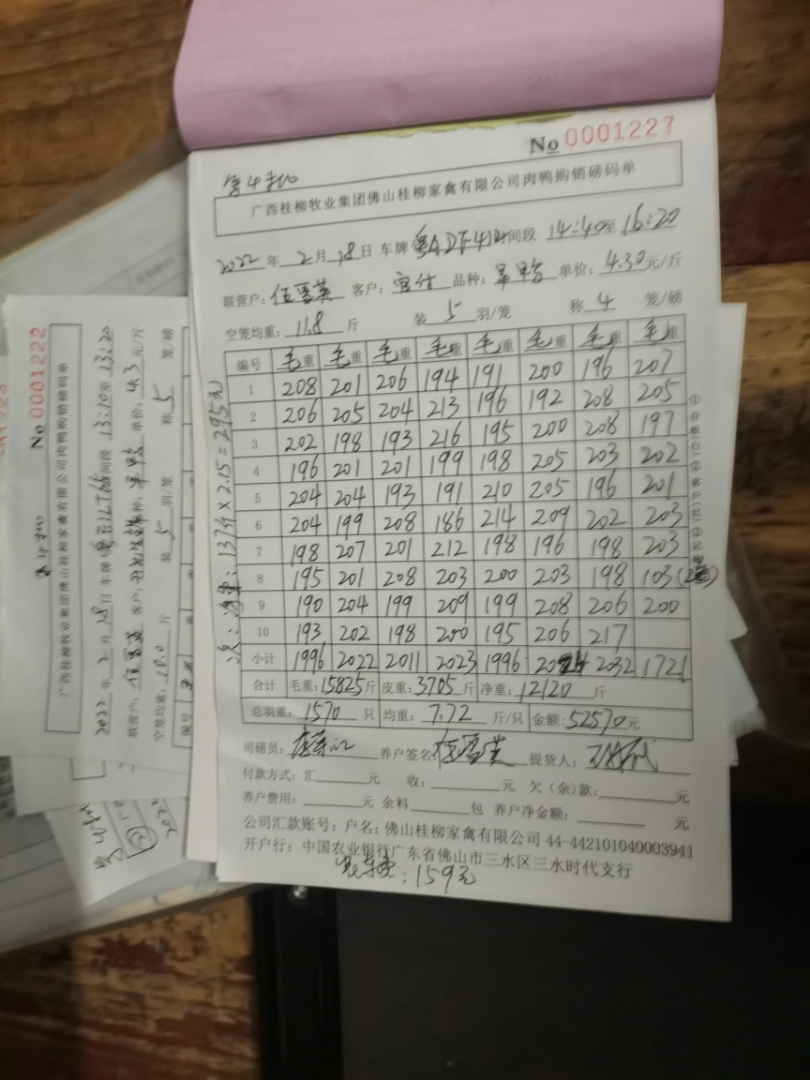 No 0001227
广西桂柳牧业集团佛山桂柳家禽有限公司肉鸭购销磅码单
2022 年 2 月 18 日 车牌 粤ADF41 时间段 14:40 至 16:20
联营户: 伍雪英 客户: 品种: 单价: 4.30 元/斤
空笼均重: 11.8 斤 装 5 羽/笼 称 4 笼/磅
编号 毛重 毛重 毛重 毛重 毛重 毛重 毛重 毛重
1 208 201 206 194 191 200 196 207
2 206 205 204 213 196 192 208 205
3 202 198 193 216 195 200 208 197
4 196 201 201 199 198 205 203 202
5 204 204 193 191 210 205 196 201
6 204 199 208 186 214 209 202 203
7 198 207 201 212 198 196 198 203
8 195 201 208 203 200 203 198 103
9 190 204 199 209 199 208 206 200
10 193 202 198 200 195 206 217
小计 1996 2022 2011 2023 1996 2024 2032 1721
合计 毛重: 15825 斤 皮重: 3705 斤 净重: 12120 斤
总羽重: 1570 只 均重: 7.72 斤/只 金额: 52570 元
司磅员: 养户签名: 伍雪英 提货人:
付款方式: 汇 元 收: 元 欠(余)款: 元
养户费用: 元 余料 包 养户净金额: 元
公司汇款账号: 户名: 佛山桂柳家禽有限公司 44-442101040003941
开户行: 中国农业银行广东省佛山市三水区三水时代支行
: 159元
: 137斤 × 2.15 = 295元
No 0001222
广西桂柳牧业集团佛山桂柳家禽有限公司肉鸭购销磅码单
2022 年 2 月 18 日 车牌 时间段 13:10 至 13:20
联营户: 伍雪英 客户: 品种: 单价: 4.3 元/斤
空笼均重: 斤 装 5 羽/笼 称 5 笼/磅
编号